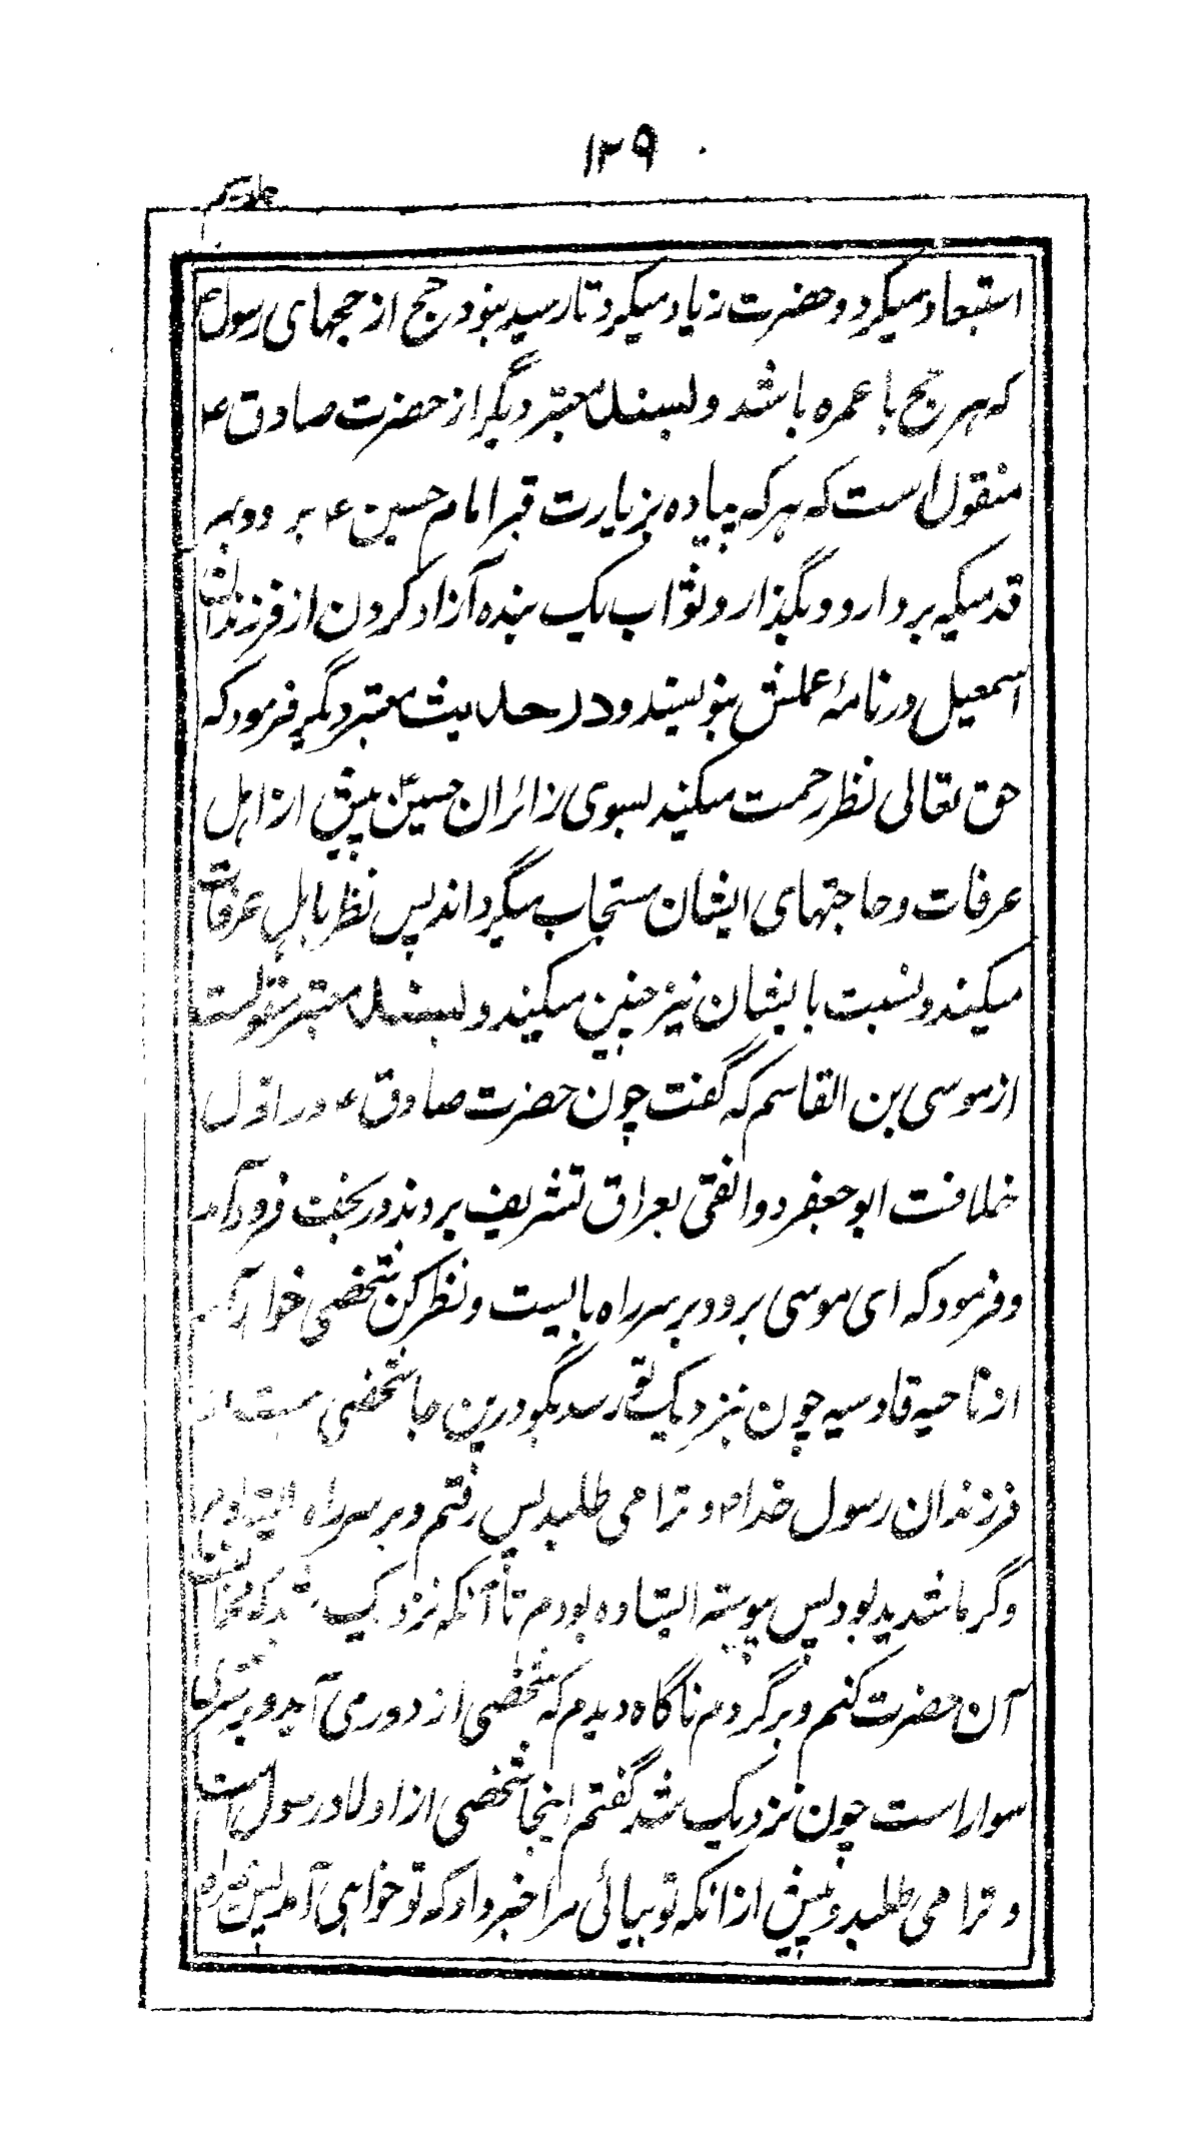 ۱۲۹
استبعاد میکرد و حضرت زیاد میکرد تا رسید بنود حج از حجهای رسول ص
که هر حج با عمره باشد و بسند معتبر دیگر از حضرت صادق ع
منقول است که هر که پیاده بزیارت قبر امام حسین ع برود بهر
قدمیکه بردارد و بگذارد ثواب یک بنده آزاد کردن از فرزندان
اسمعیل در نامهٔ عملش بنویسند و در حدیث معتبر دیگر فرمود که
حق تعالی نظر رحمت میکند بسوی زائران حسین ع پیش از اهل
عرفات و حاجتهای ایشان مستجاب میگرداند پس نظر باهل عرفات
میکند و نسبت بایشان نیز چنین میکند و بسند معتبر منقولست
از موسی بن القاسم که گفت چون حضرت صادق ع در اول
خلافت ابو جعفر دوانقی بعراق تشریف بردند در نجف فرود آمد
و فرمود که ای موسی برو و بر سر راه بایست و نظر کن شخصی خواهد آمد
از ناحیه قادسیه چون نزدیک تو رسد بگو درین جا شخصی هست از
فرزندان رسول خدا ص و ترا می طلبد پس رفتم و بر سر راه ایستادم
و گرما شدید بود پس پیوسته ایستاده بودم تا آنکه نزدیک شد که مخالفت
آن حضرت کنم و برگردم ناگاه دیدم که شخصی از دور می آید و بر شتری
سوار است چون نزدیک شد گفتم اینجا شخصی از اولاد رسول است
و ترا می طلبد و پیش از انکه تو بیائی مرا خبر داد که تو خواهی آمد پس